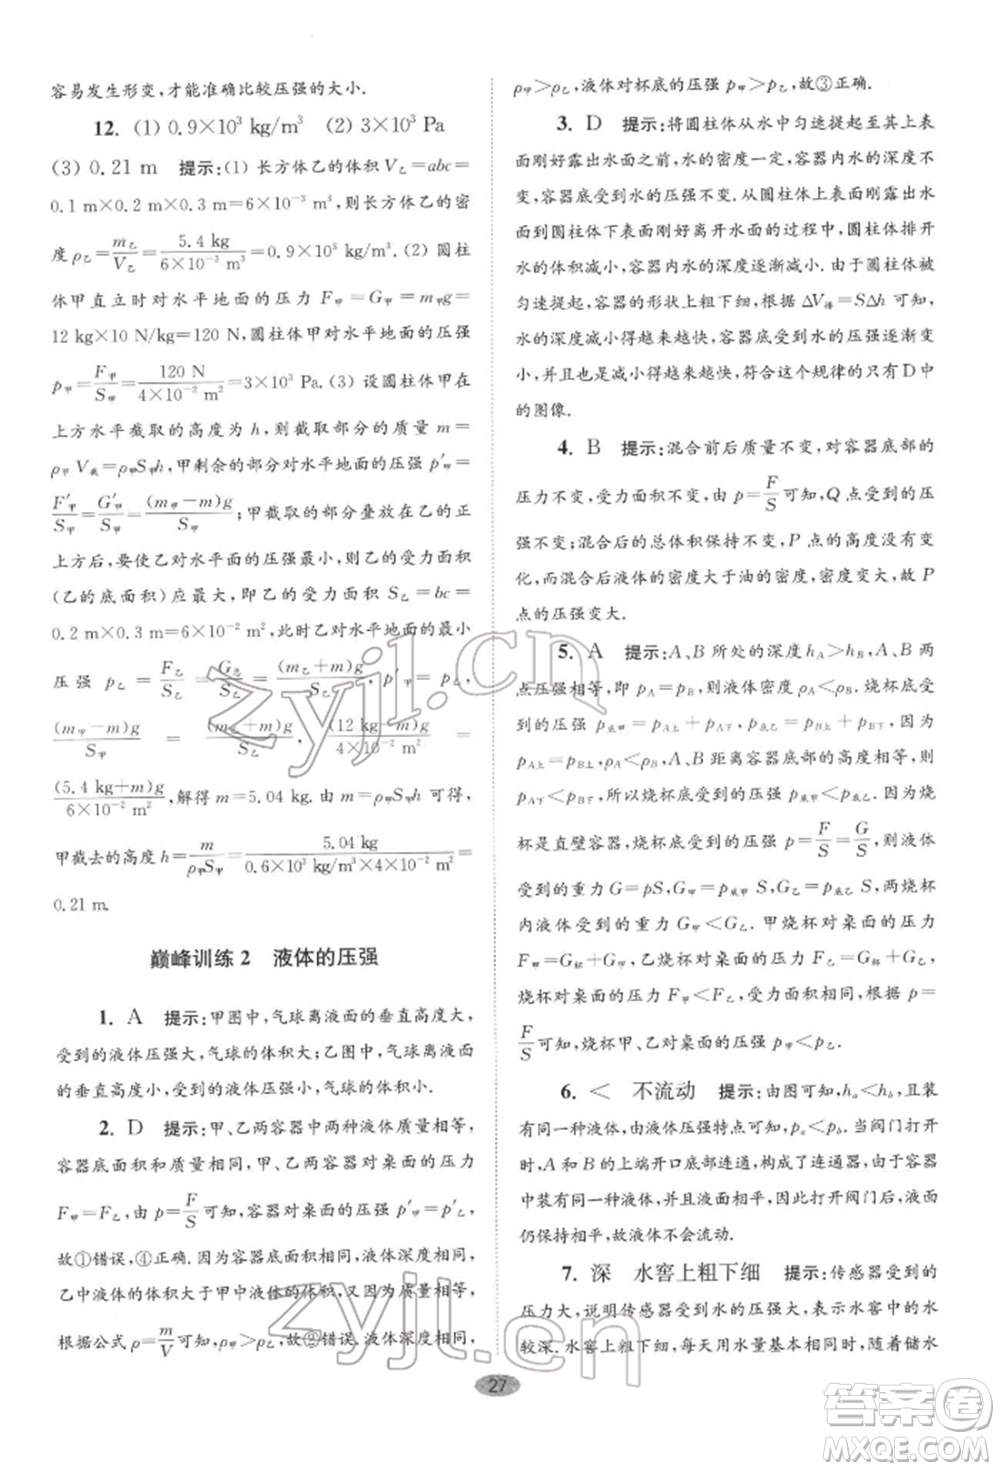 容易发生形变,才能准确比较压强的大小.
12. (1) 0.9×10³ kg/m³ (2) 3×10³ Pa
(3) 0.21 m 提示:(1) 长方体乙的体积 V乙=abc=
0.1 m×0.2 m×0.3 m=6×10⁻³ m³,则长方体乙的密
度 ρ乙=m乙/V乙=5.4 kg/6×10⁻³ m³=0.9×10³ kg/m³.(2) 圆柱
体甲直立时对水平地面的压力 F甲=G甲=m甲g=
12 kg×10 N/kg=120 N,圆柱体甲对水平地面的压强
p甲=F甲/S甲=120 N/4×10⁻² m²=3×10³ Pa.(3) 设圆柱体甲在
上方水平截取的高度为 h,则截取部分的质量 m=
ρ甲V截=ρ甲S甲h,甲剩余的部分对水平地面的压强 p′甲=
F′甲/S甲=G′甲/S甲=(m甲-m)g/S甲;甲截取的部分叠放在乙的正
上方后,要使乙对水平面的压强最小,则乙的受力面积
(乙的底面积)应最大,即乙的受力面积 S乙=bc=
0.2 m×0.3 m=6×10⁻² m²,此时乙对水平地面的最小
压强 p乙=F乙/S乙=G总/S乙=(m乙+m)g/S乙,
(m甲-m)g/S甲=(m乙+m)g/S乙=(12 kg-m)g/4×10⁻² m²=
(5.4 kg+m)g/6×10⁻² m²,解得 m=5.04 kg. 由 m=ρ甲S甲h 可得,
甲截去的高度 h=m/ρ甲S甲=5.04 kg/0.6×10³ kg/m³×4×10⁻² m²=
0.21 m.
巅峰训练2 液体的压强
1. A 提示:甲图中,气球离液面的垂直高度大,
受到的液体压强大,气球的体积大;乙图中,气球离液面
的垂直高度小,受到的液体压强小,气球的体积小.
2. D 提示:甲、乙两容器中两种液体质量相等,
容器底面积与质量相同,甲、乙两容器对桌面的压力
F甲=F乙,由 p=F/S可知,容器对桌面的压强 p′甲=p′乙,
故①错误,④正确.因为容器底面积相同,液体深度相同,
乙中液体的体积大于甲中液体的体积,液体质量相同,
根据公式 ρ=m/V可知,ρ甲>ρ乙,故②错误.液体深度相同,
ρ甲>ρ乙,液体对杯底的压强 p甲>p乙,故③正确.
3. D 提示:将圆柱体从水中匀速提起,在上表
面刚好露出水面之前,水的密度一定,容器内水的深度不
变,容器底感受到水的压强不变.从圆柱体上表面刚好露出水
面到圆柱体下表面刚好离开水面的过程中,圆柱体排开
水的体积减小,容器内水的深度减小.由于圆柱体被
匀速提起,容器的形状上粗下细,根据 ΔV排=SΔh 可知,
水的深度减小得越来越快,容器底受到水的压强逐渐变
小,并且减小得越来越快,符合这个规律的只有 D 中
的图像.
4. B 提示:混合前后质量不变,对容器底部的
压力不变,受力面积不变,由 p=F/S可知,Q 点受到的压
强不变;混合后的总体积保持不变,P 点的深度不变,
而混合后液体的密度大于油的密度,密度变大,故 P
点的压强变大.
5. A 提示:A、B 所处的深度 hA>hB,A、B 两
点压强相等,即 pA=pB,液体密度 ρA<ρB.烧杯底受
到的压强 p底甲=pA上+pA下,p底乙=pB上+pB下,由于
pA上=pB上,A、B 距离容器底的高度相同,ρA<ρB,
pA下<pB下,所以烧杯底受到的压强 p底甲<p底乙.烧
杯是直壁容器,烧杯底受到的压强 p=F/S=G/S,则液体
受到的重力 G=pS,G甲=p底甲S,G乙=p底乙S,两烧杯
内液体重力 G甲<G乙.甲烧杯对桌面的压力
F甲=G杯+G甲,乙烧杯对桌面的压力 F乙=G杯+G乙,
烧杯对桌面的压力 F甲<F乙,受力面积相同,根据 p=
F/S可知,烧杯甲、乙对桌面的压强 p甲<p乙.
6. < 不流动 提示:由图可知,ha<hb,且装
有同一种液体,由液体压强特点可知,pa<pb.当阀门打开
时,A 和 B 的上端开口底部连通,构成了连通器,由于容器
中装有同一种液体,且液面相平,因此打开阀门后,液面
仍保持相平,故液体不会流动.
7. 深 水窖上粗下细 提示:传感器受到的
压力大,说明传感器受到水的压强大,表示水窖中的水
较深.水窖上粗下细,每天用水量基本相同,随着储水
27
zyjl.cn
zyjl.cn
答案圈
MXQE.COM